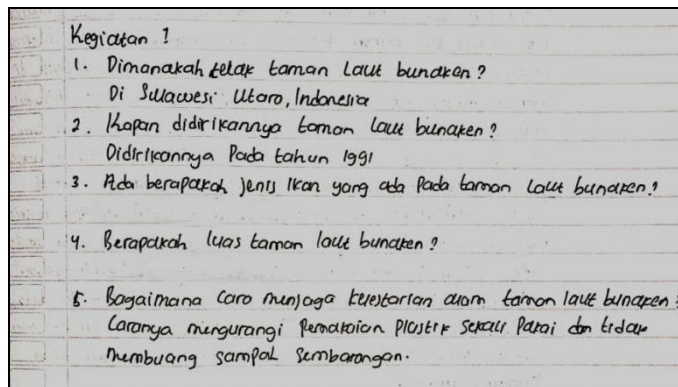 Kegiatan 1
1. Dimanakah telak taman laut bunaken?
Di Sulawesi Utara, Indonesia
2. Kapan didirikannya taman laut bunaken?
Didirikannya Pada tahun 1991
3. Ada berapakah jenis ikan yang ada Pada taman laut bunaken?
4. Berapakah luas taman laut bunaken?
5. Bagaimana cara menjaga kelestarian alam taman laut bunaken?
Caranya mengurangi Pemakaian Plastik sekali Pakai dan tidak
membuang sampah sembarangan.